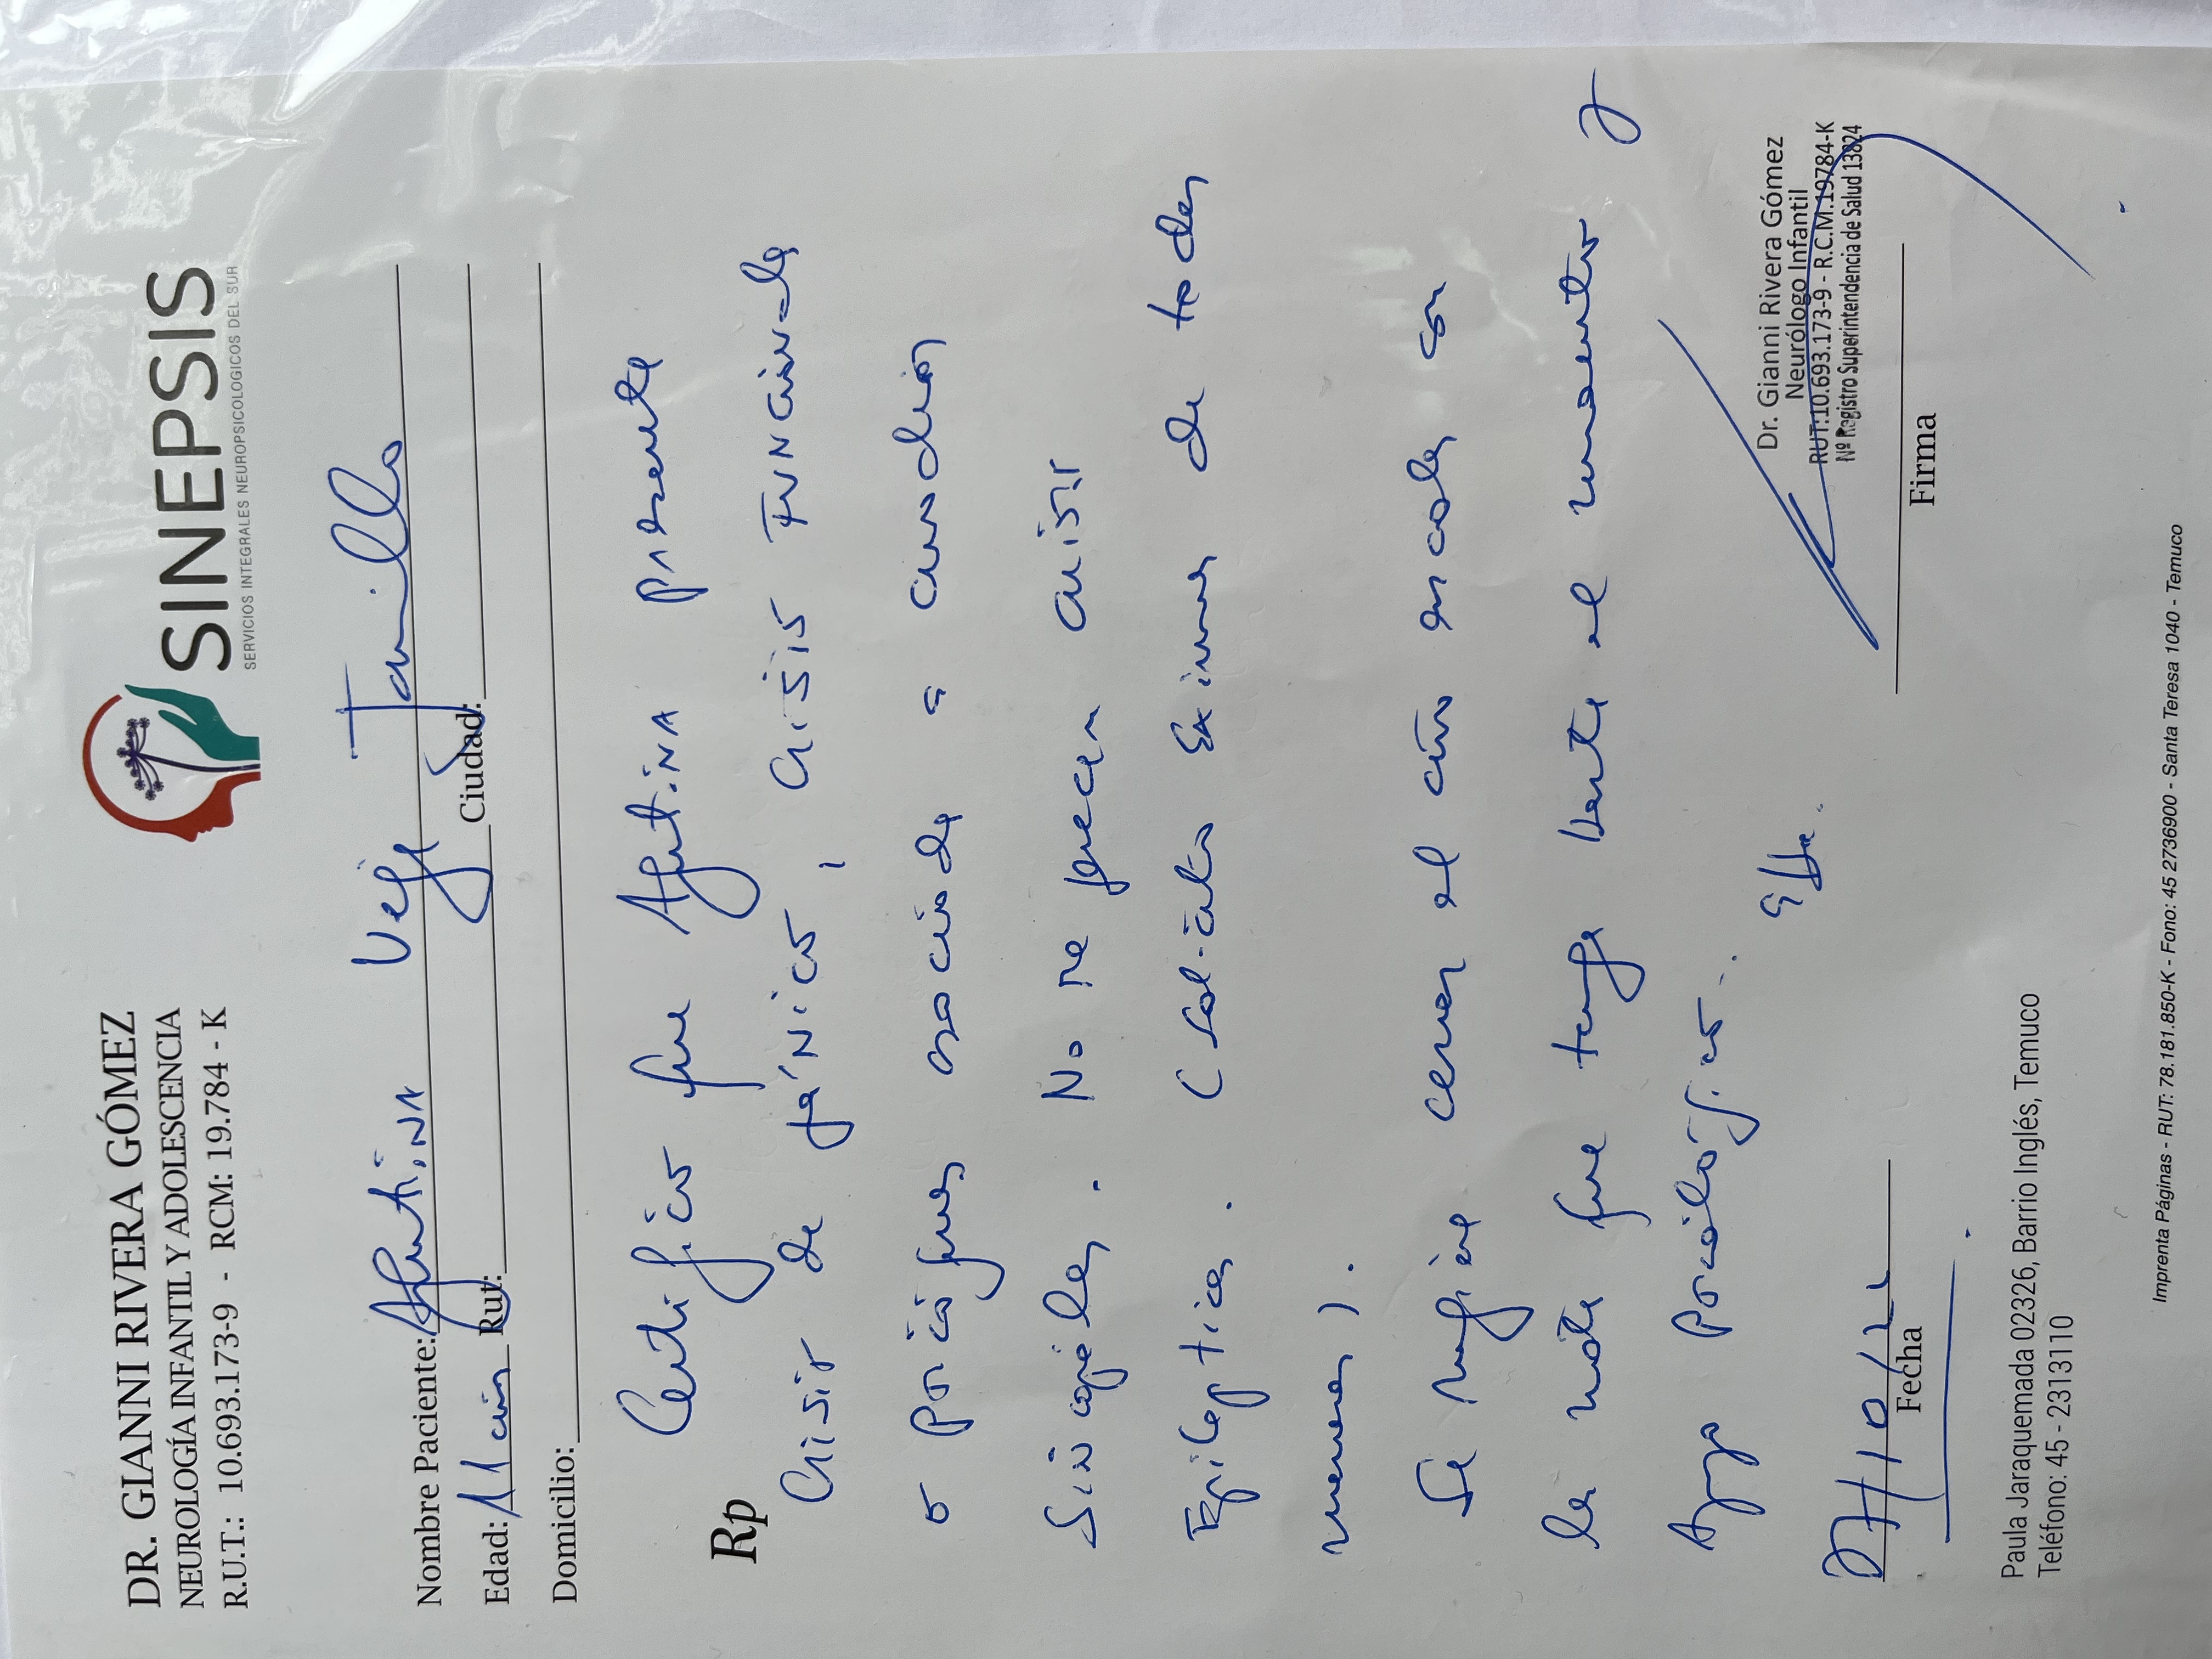 DR. GIANNI RIVERA GÓMEZ
NEUROLOGÍA INFANTIL Y ADOLESCENCIA
R.U.T.: 10.693.173-9 - RCM: 19.784 - K
SINEPSIS
SERVICIOS INTEGRALES NEUROPSICOLOGICOS DEL SUR
Nombre Paciente: Agustina Vega Jaramillo
Edad: 11 años Rut: Ciudad:
Domicilio:
Rp
Certifico que Agustina presenta
Crisis de pánico, crisis funcionales
o psicógenas asociada a cuadros
sincopales. No me parecen crisis
Epilépticas. (Solicito Exámenes de todas
maneras).
Se sugiere cerrar el año escolar con
la nota que tenga hasta el momento y
Apoyo Psicológico.
Dr. Gianni Rivera Gómez
Neurólogo Infantil
RUT:10.693.173-9 - R.C.M.19784-K
Nº Registro Superintendencia de Salud 13824
Fecha
Firma
Paula Jaraquemada 02326, Barrio Inglés, Temuco
Teléfono: 45 - 2313110
Imprenta Páginas - RUT: 78.181.850-K - Fono: 45 2736900 - Santa Teresa 1040 - Temuco